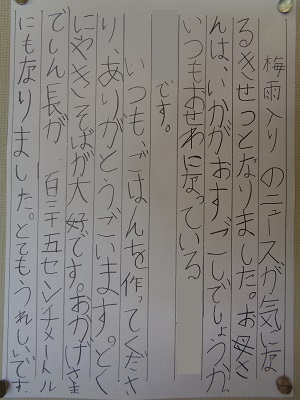 梅雨入り のニュースが気にな
るきせつとなりました。お母さ
んは、いかがおすごしでしょうか。
いつもおせわになっている
です。
いつも、ごはんを作ってくださ
り、ありがとうございます。とく
にやきそばが大好です。おかげさま
でしん長が 百三十五センチメートル
にもなりました。とてもうれしいです